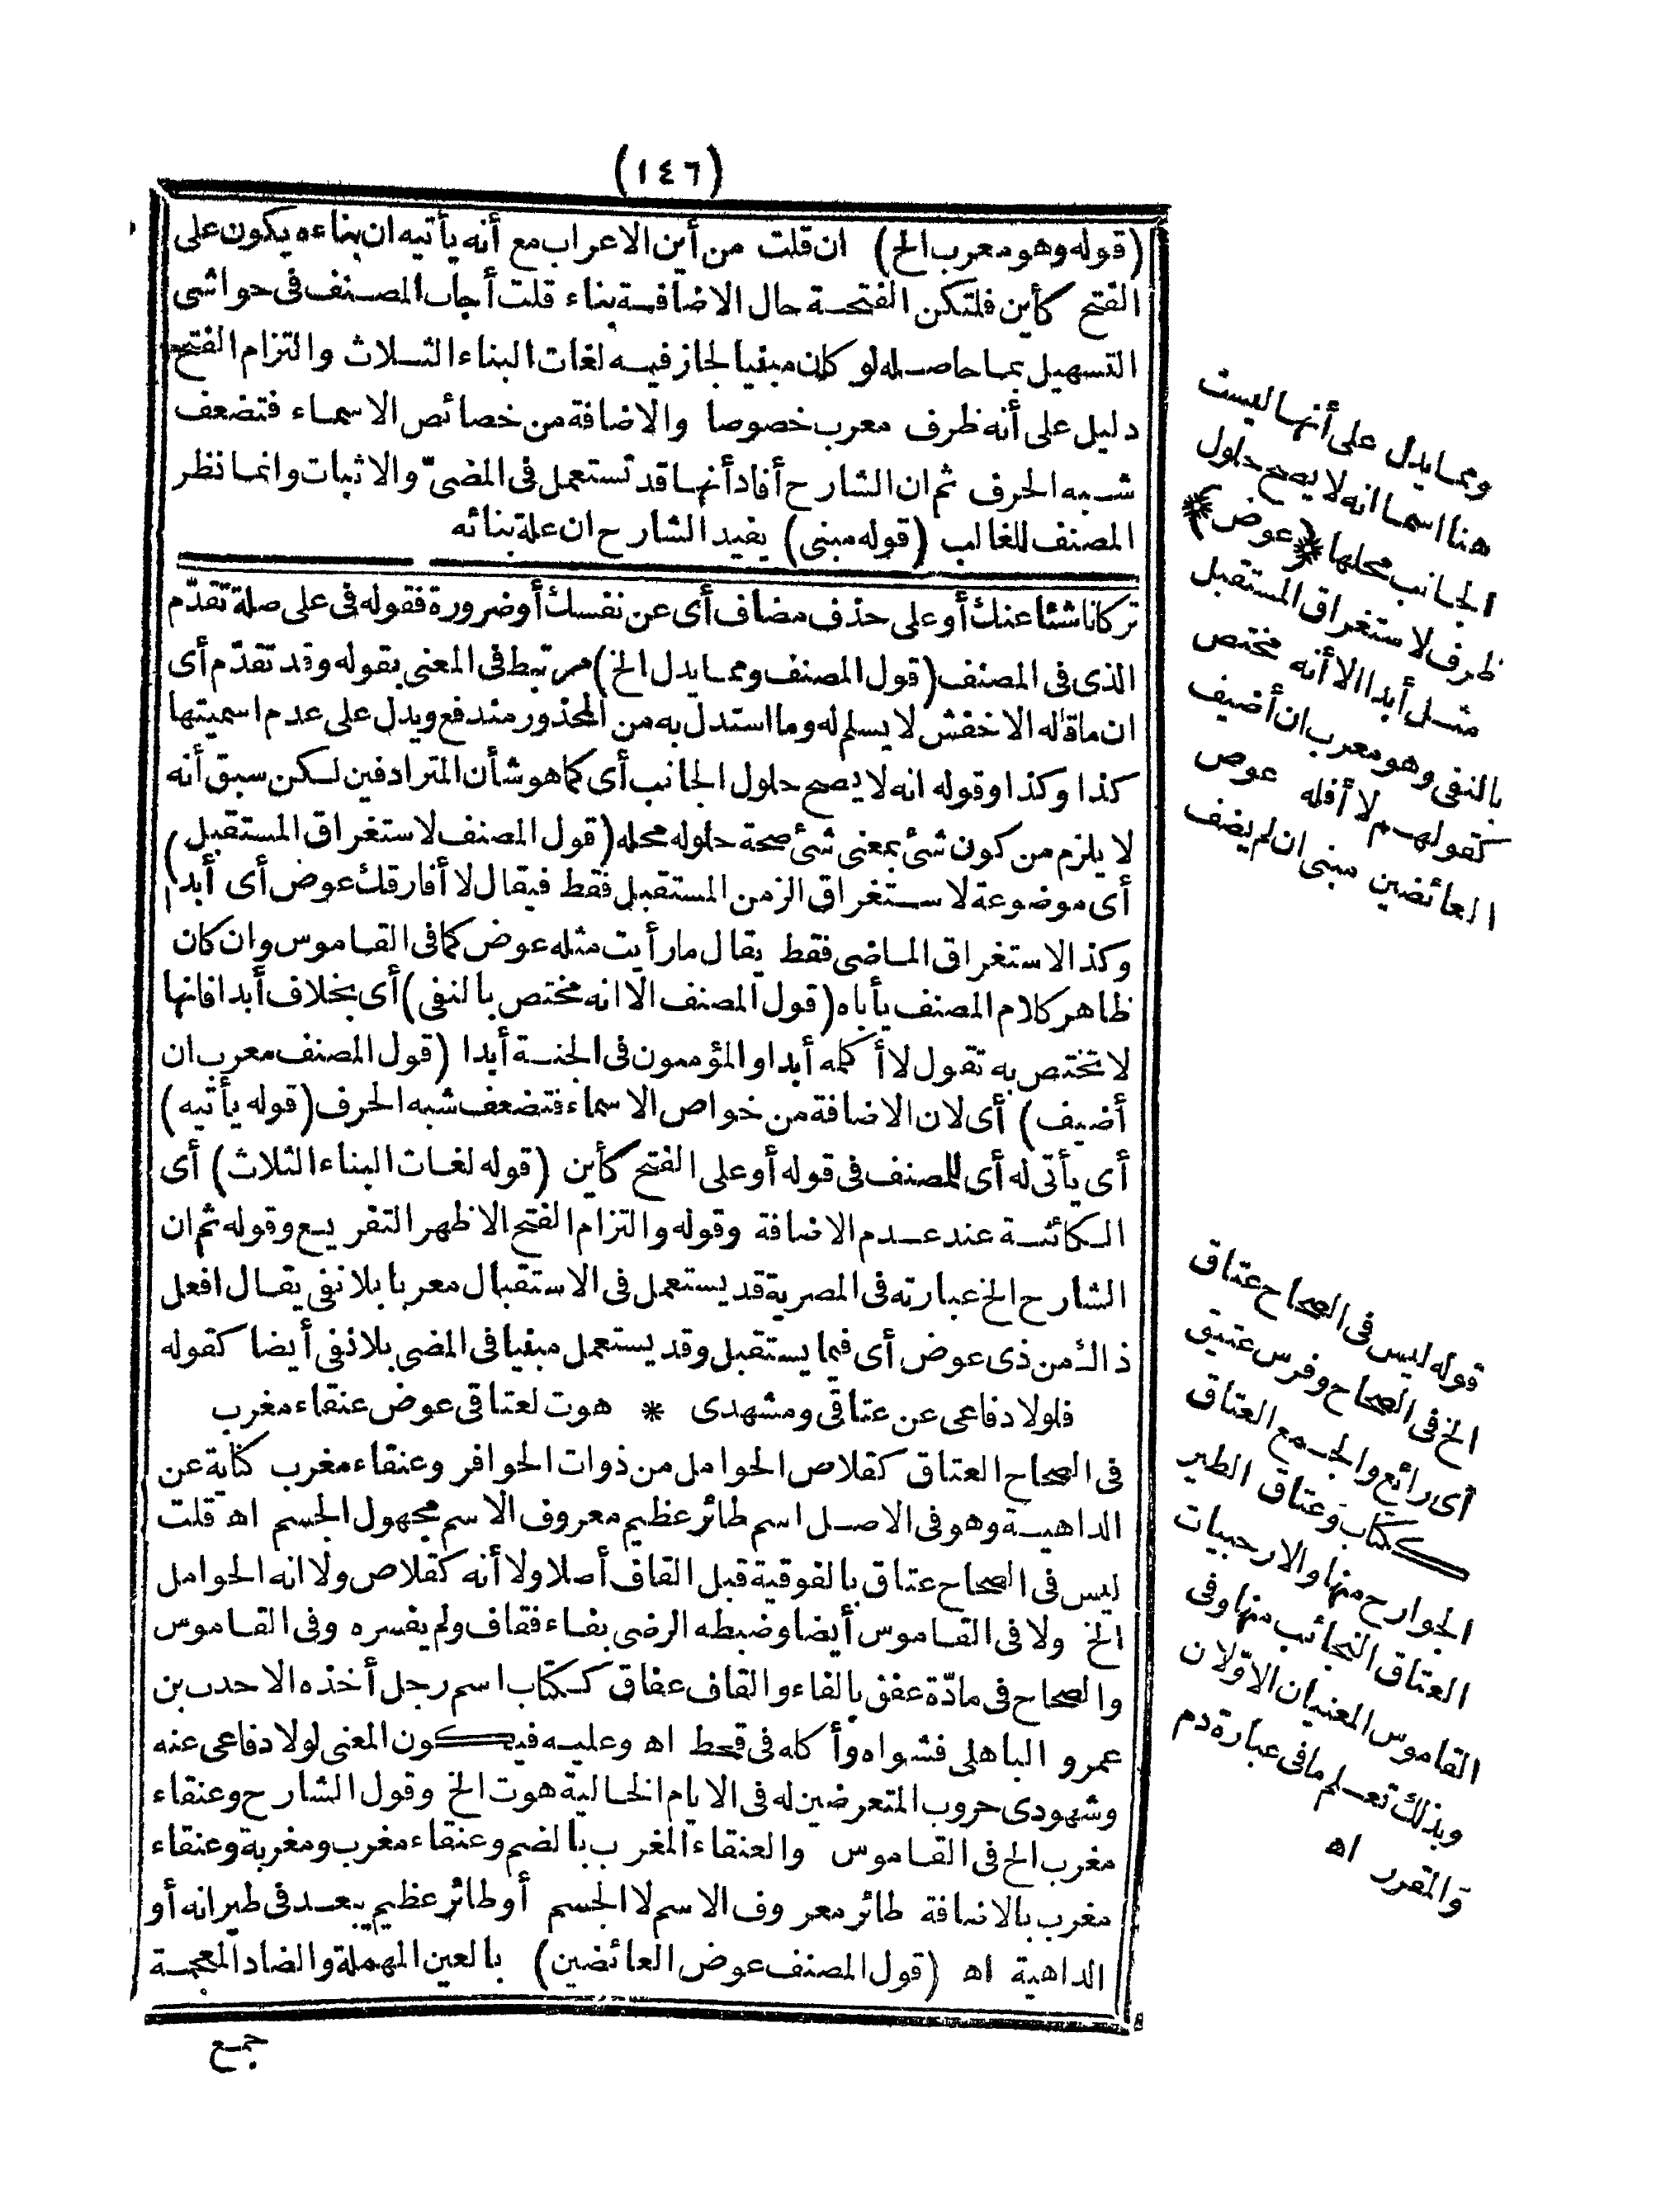 (١٤٦)
(قوله وهو معرب الخ) ان قلت من أين الاعراب مع أنه يأتيه ان بناءه يكون على
الفتح كأين فلتكن الفتحة حال الاضافة بناء قلت أجاب المصنف فى حواشى
التسهيل بما حاصله لو كان مبنيا لجاز فيه لغات البناء الثلاث والتزام الفتح
دليل على أنه ظرف معرب خصوصا والاضافة من خصائص الاسماء فتضعف
شبه الحرف ثم ان الشارح أفاد أنها قد تستعمل فى المضىّ والاثبات وانما نظر
المصنف للغالب (قوله مبنى) يفيد الشارح ان علة بنائه
تركا ناشئا عنك أو على حذف مضاف أى عن نفسك أو ضرورة فقوله فى على صلة تقدّم
الذى فى المصنف (قول المصنف ومما يدل الخ) مرتبط فى المعنى بقوله وقد تقدّم أى
ان ما قاله الاخفش لا يسلم له وما استدل به من المحذور مندفع ويدل على عدم اسميتها
كذا وكذا وقوله انه لا يصح حلول الجانب أى كما هو شأن المترادفين لكن سبق أنه
لا يلزم من كون شئ بمعنى شئ صحة حلوله محله (قول المصنف لاستغراق المستقبل)
أى موضوعة لاستغراق الزمن المستقبل فقط فيقال لا أفارقك عوض أى أبدا
وكذا لاستغراق الماضى فقط يقال ما رأيت مثله عوض كما فى القاموس وان كان
ظاهر كلام المصنف يأباه (قول المصنف الا انه مختص بالنفى) أى بخلاف أبدا فانها
لا تختص به تقول لا أكلمه أبدا والمؤمنون فى الجنة أبدا (قول المصنف معرب ان
أضيف) أى لان الاضافة من خواص الاسماء فتضعف شبه الحرف (قوله يأتيه)
أى يأتى له أى للمصنف فى قوله أو على الفتح كأين (قوله لغات البناء الثلاث) أى
الكائنة عند عدم الاضافة وقوله والتزام الفتح الاظهر التفريع وقوله ثم ان
الشارح الخ عبارته فى المصرية قد يستعمل فى الاستقبال معربا بلا نفى يقال افعل
ذاك من ذى عوض أى فيما يستقبل وقد يستعمل مبنيا فى المضى بلا نفى أيضا كقوله
فلولا دفاعى عن عتاقى ومشهدى * هوت لعتاقى عوض عنقاء مغرب
فى الصحاح العتاق كقلاص الحوامل من ذوات الحوافر وعنقاء مغرب كناية عن
الداهية وهو فى الاصل اسم طائر عظيم معروف الاسم مجهول الجسم اه قلت
ليس فى الصحاح عتاق بالفوقية قبل القاف أصلا ولا أنه كقلاص ولا انه الحوامل
الخ ولا فى القاموس أيضا وضبطه الرضى بفاء فقاف ولم يفسره وفى القاموس
والصحاح فى مادّة عفق بالفاء والقاف عفاق ككتاب اسم رجل أخذه الاحدب بن
عمرو الباهلى فشواه وأكله فى قحط اه وعليه فيكون المعنى لولا دفاعى عنه
وشهودى حروب المتعرضين له فى الايام الخالية هوت الخ وقول الشارح وعنقاء
مغرب الخ فى القاموس والعنقاء المغرب بالضم وعنقاء مغرب ومغربة وعنقاء
مغرب بالاضافة طائر معروف الاسم لا الجسم أو طائر عظيم يبعد فى طيرانه أو
الداهية اه (قول المصنف عوض العائضين) بالعين المهملة والضاد المعجمة
جمع
ومما يدل على أنها ليست
هنا اسما انه لا يصح حلول
الجانب محلها *(عوض)*
ظرف لاستغراق المستقبل
مثل أبدا الا أنه مختص
بالنفى وهو معرب ان أضيف
كقولهم لا أفعله عوض
العائضين مبنى ان لم يضف
قوله ليس فى الصحاح عتاق
الخ فى الصحاح وفرس عتيق
أى رائع والجمع العتاق
ككتاب وعتاق الطير
الجوارح منها والارحبيات
العتاق النجائب منها وفى
القاموس المعنيان الاوّلان
وبذلك تعلم ما فى عبارة دم
والمقرر اه